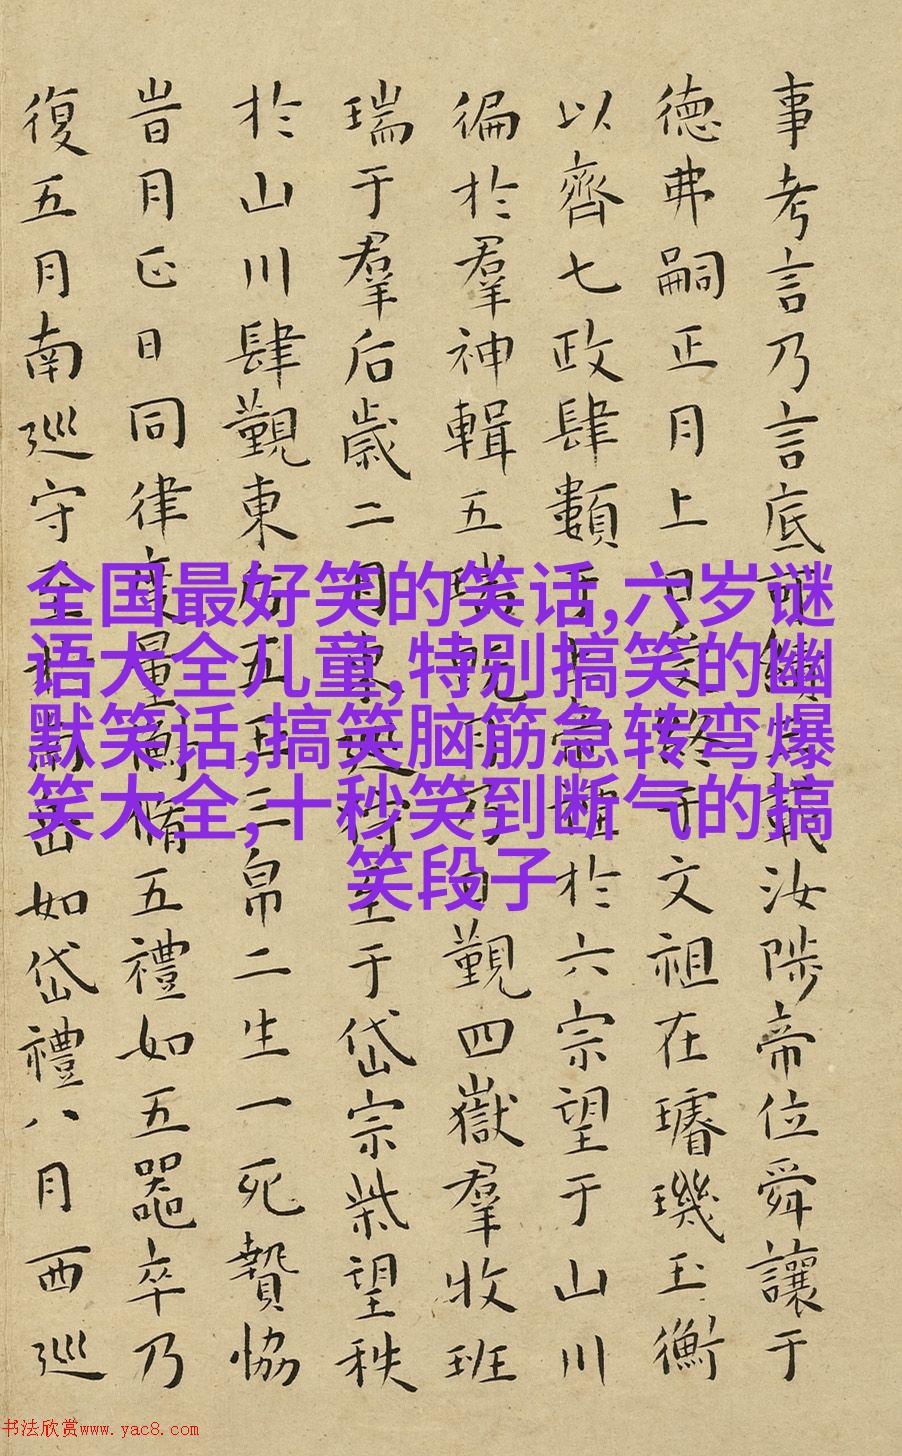 事考言乃言底可績三載汝陟帝位舜讓于
德弗嗣正月上日受終于文祖在璿璣玉衡
以齊七政肆類于上帝禋於六宗望于山川
徧於羣神輯五瑞既月乃日覲四嶽羣牧班
瑞于羣后歲二月東巡狩至于岱宗柴望秩
於山川肆覲東后五玉三帛二生一死贄協
旹月正日同律度量衡脩五禮如五器卒乃
復五月南巡守至于南岳如岱禮八月西巡
全国最好笑的笑话,六岁谜
语大全儿童,特别搞笑的幽
默笑话,搞笑脑筋急转弯爆
笑大全,十秒笑到断气的搞
笑段子
书法欣赏www.yac8.com